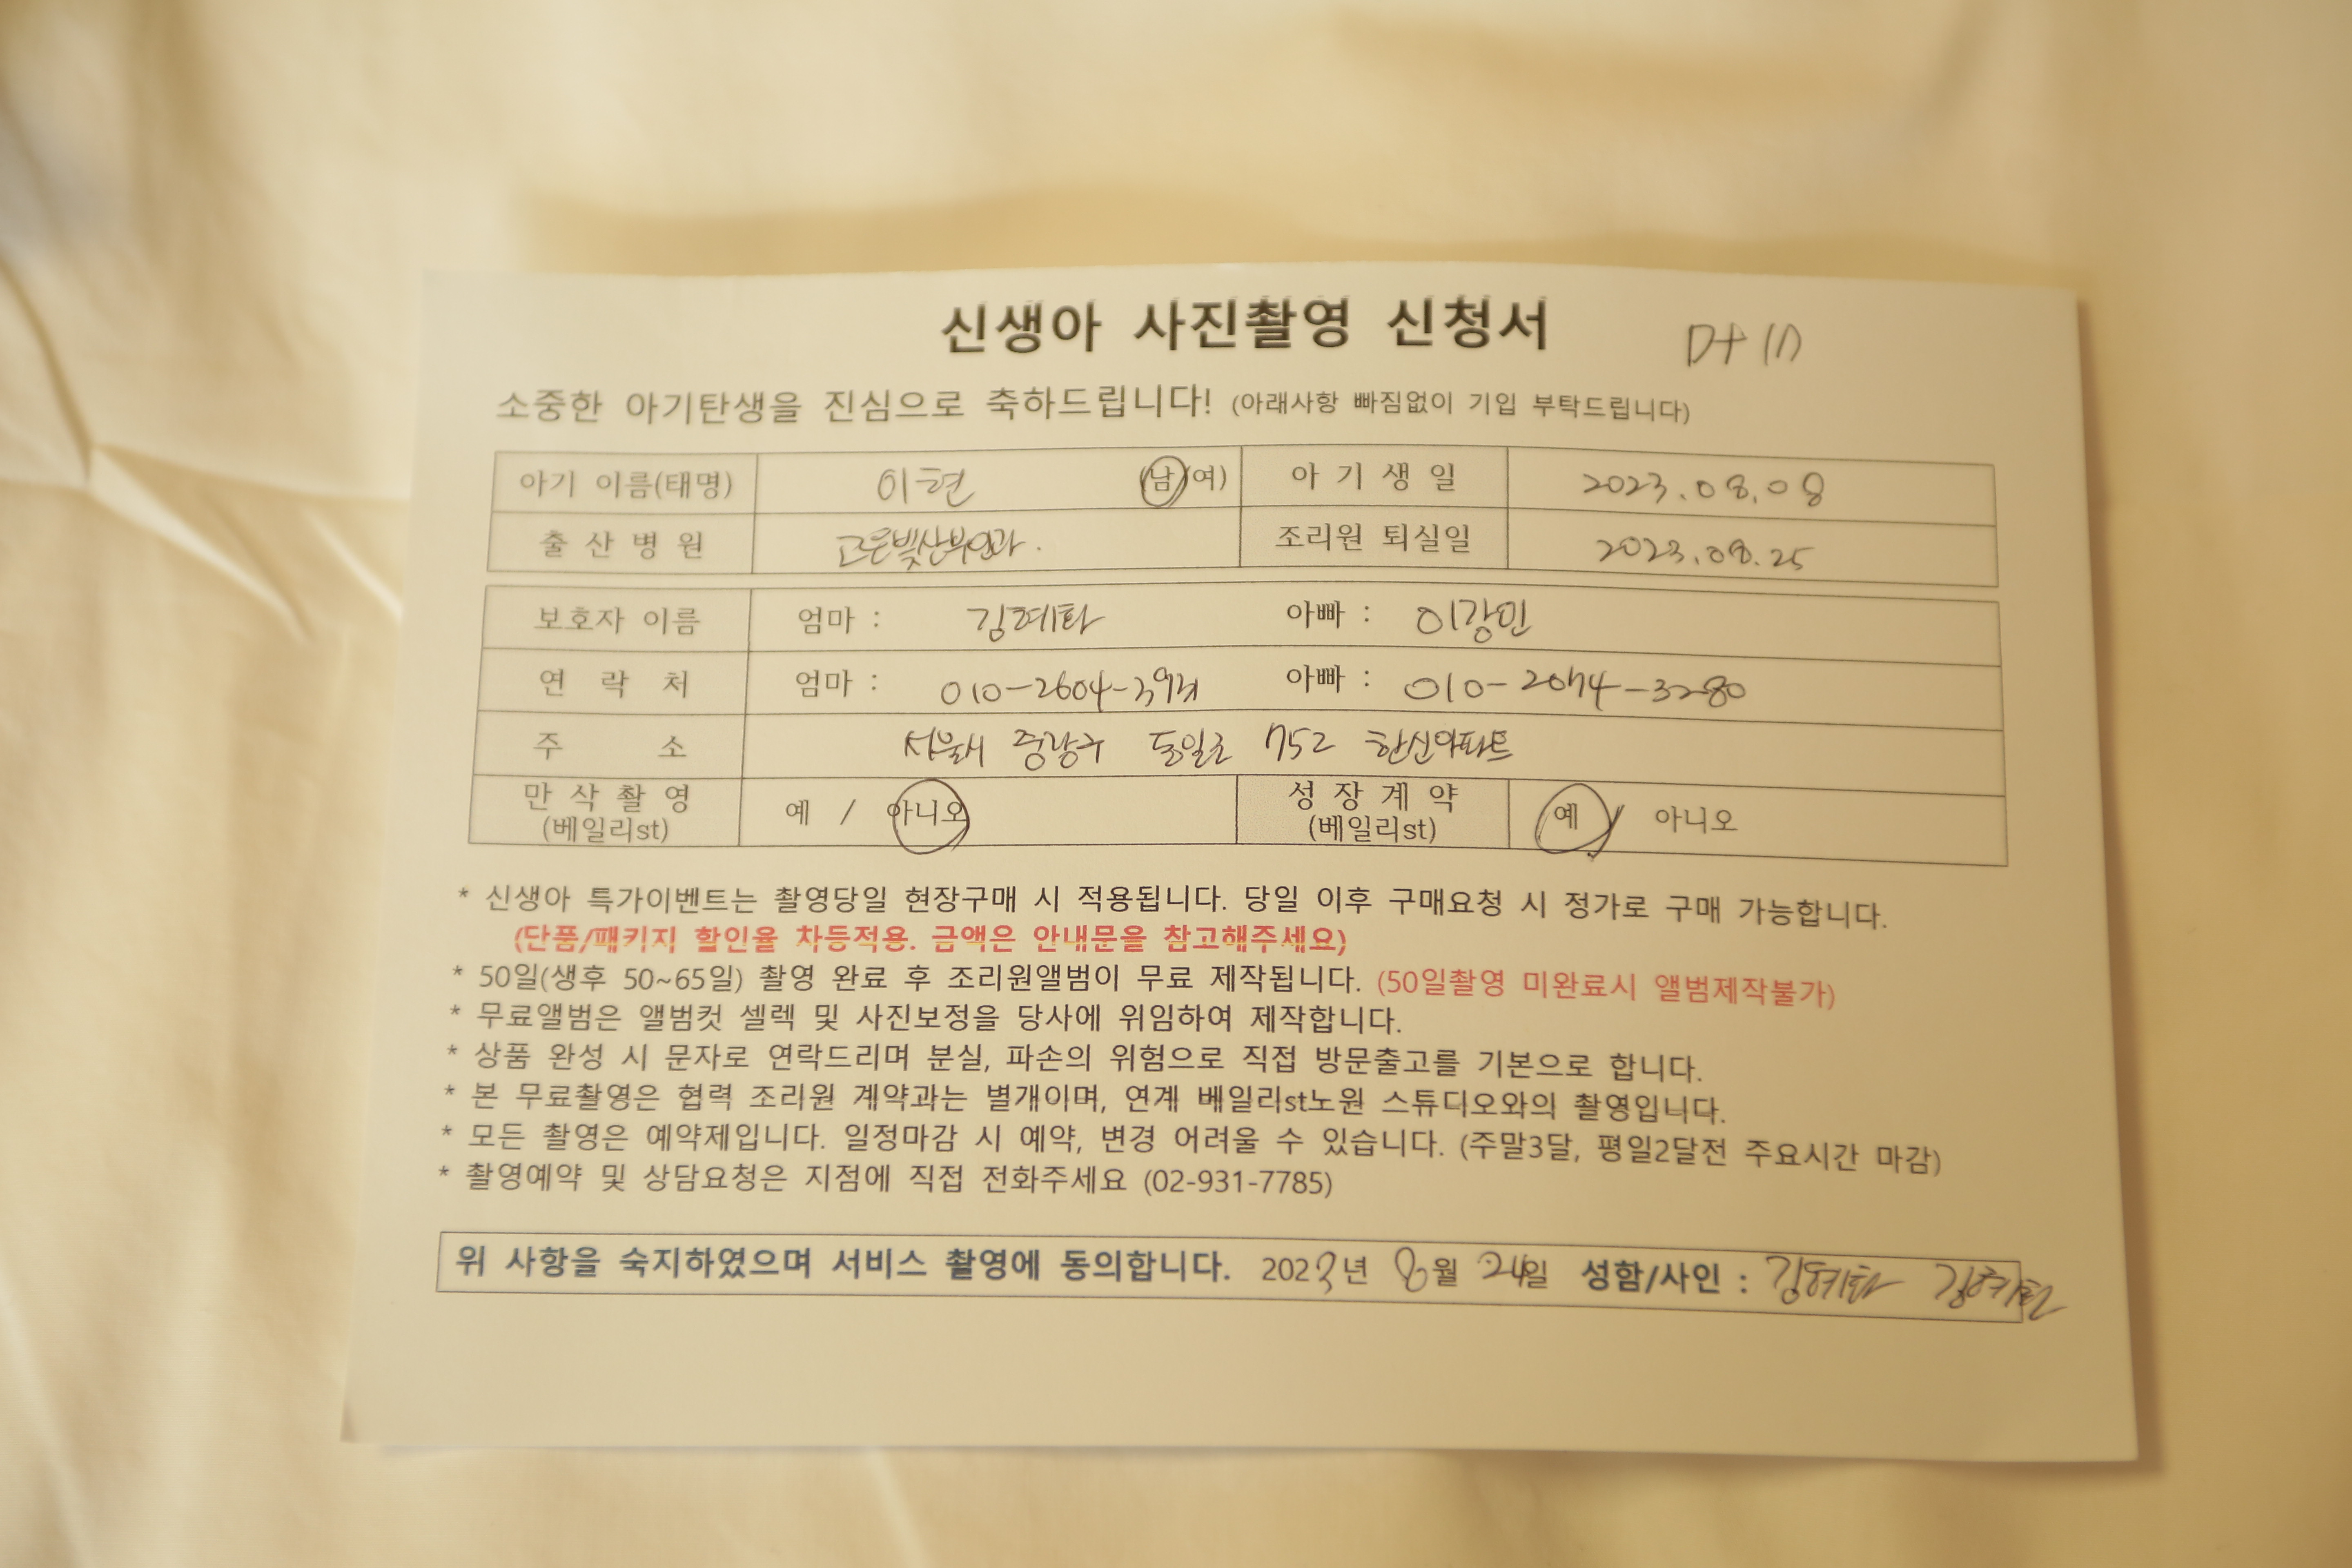 신생아 사진촬영 신청서
소중한 아기탄생을 진심으로 축하드립니다! (아래사항 빠짐없이 기입 부탁드립니다)
아기 이름(태명) 이현 (남/여) 아 기 생 일 2023.08.08
출 산 병 원 고은빛산부인과. 조리원 퇴실일 2023.08.25
보호자 이름 엄마 : 아빠 : 이강민
연 락 처 엄마 : 아빠 : 010-2074-3280
주 소 서울시 중랑구 동일로 752 한신아파트
만 삭 촬 영 예 / 아니오 성 장 계 약 예 / 아니오
(베일리st) (베일리st)
* 신생아 특가이벤트는 촬영당일 현장구매 시 적용됩니다. 당일 이후 구매요청 시 정가로 구매 가능합니다.
(단품/패키지 할인율 차등적용. 금액은 안내문을 참고해주세요)
* 50일(생후 50~65일) 촬영 완료 후 조리원앨범이 무료 제작됩니다. (50일촬영 미완료시 앨범제작불가)
* 무료앨범은 앨범컷 셀렉 및 사진보정을 당사에 위임하여 제작합니다.
* 상품 완성 시 문자로 연락드리며 분실, 파손의 위험으로 직접 방문출고를 기본으로 합니다.
* 본 무료촬영은 협력 조리원 계약과는 별개이며, 연계 베일리st노원 스튜디오와의 촬영입니다.
* 모든 촬영은 예약제입니다. 일정마감 시 예약, 변경 어려울 수 있습니다. (주말3달, 평일2달전 주요시간 마감)
* 촬영예약 및 상담요청은 지점에 직접 전화주세요 (02-931-7785)
위 사항을 숙지하였으며 서비스 촬영에 동의합니다. 2023년 8월 24일 성함/사인 :